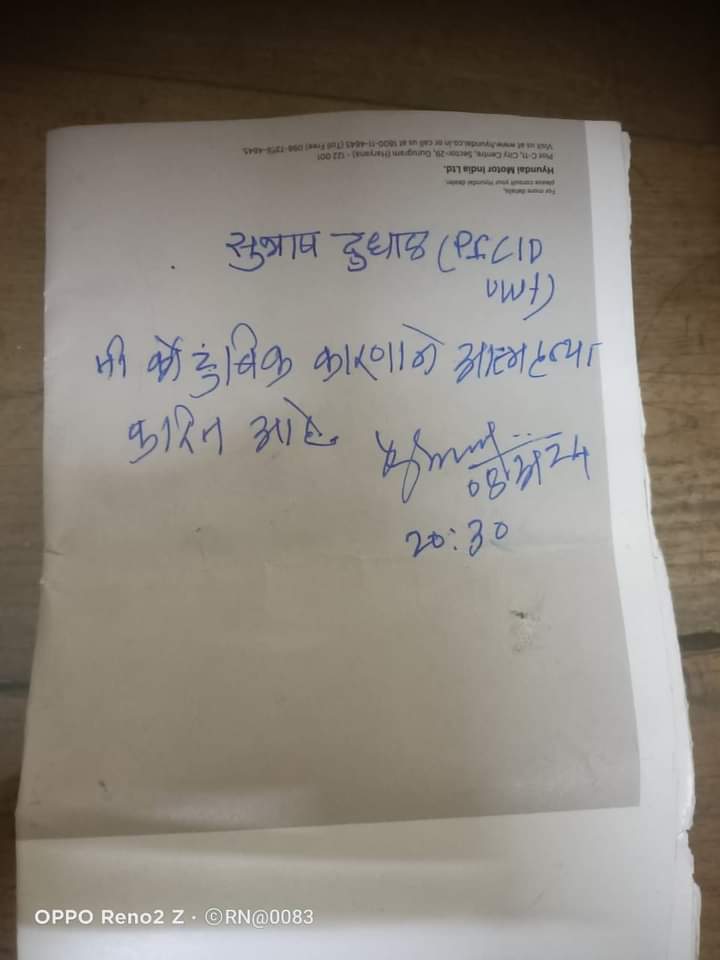 For more details,
please consult your Hyundai dealer.
Hyundai Motor India Ltd.
Plot C-11, City Centre, Sector-29, Gurugram (Haryana) - 122 001
Visit us at www.hyundai.co.in or call us at 1800-11-4645 (Toll Free) 098-7356-4645
सुभाष दुधाळ (PSI CID
मी कौटुंबिक कारणाने आत्महत्या
करित आहे.
20:30
OPPO Reno2 Z · ©RN@0083